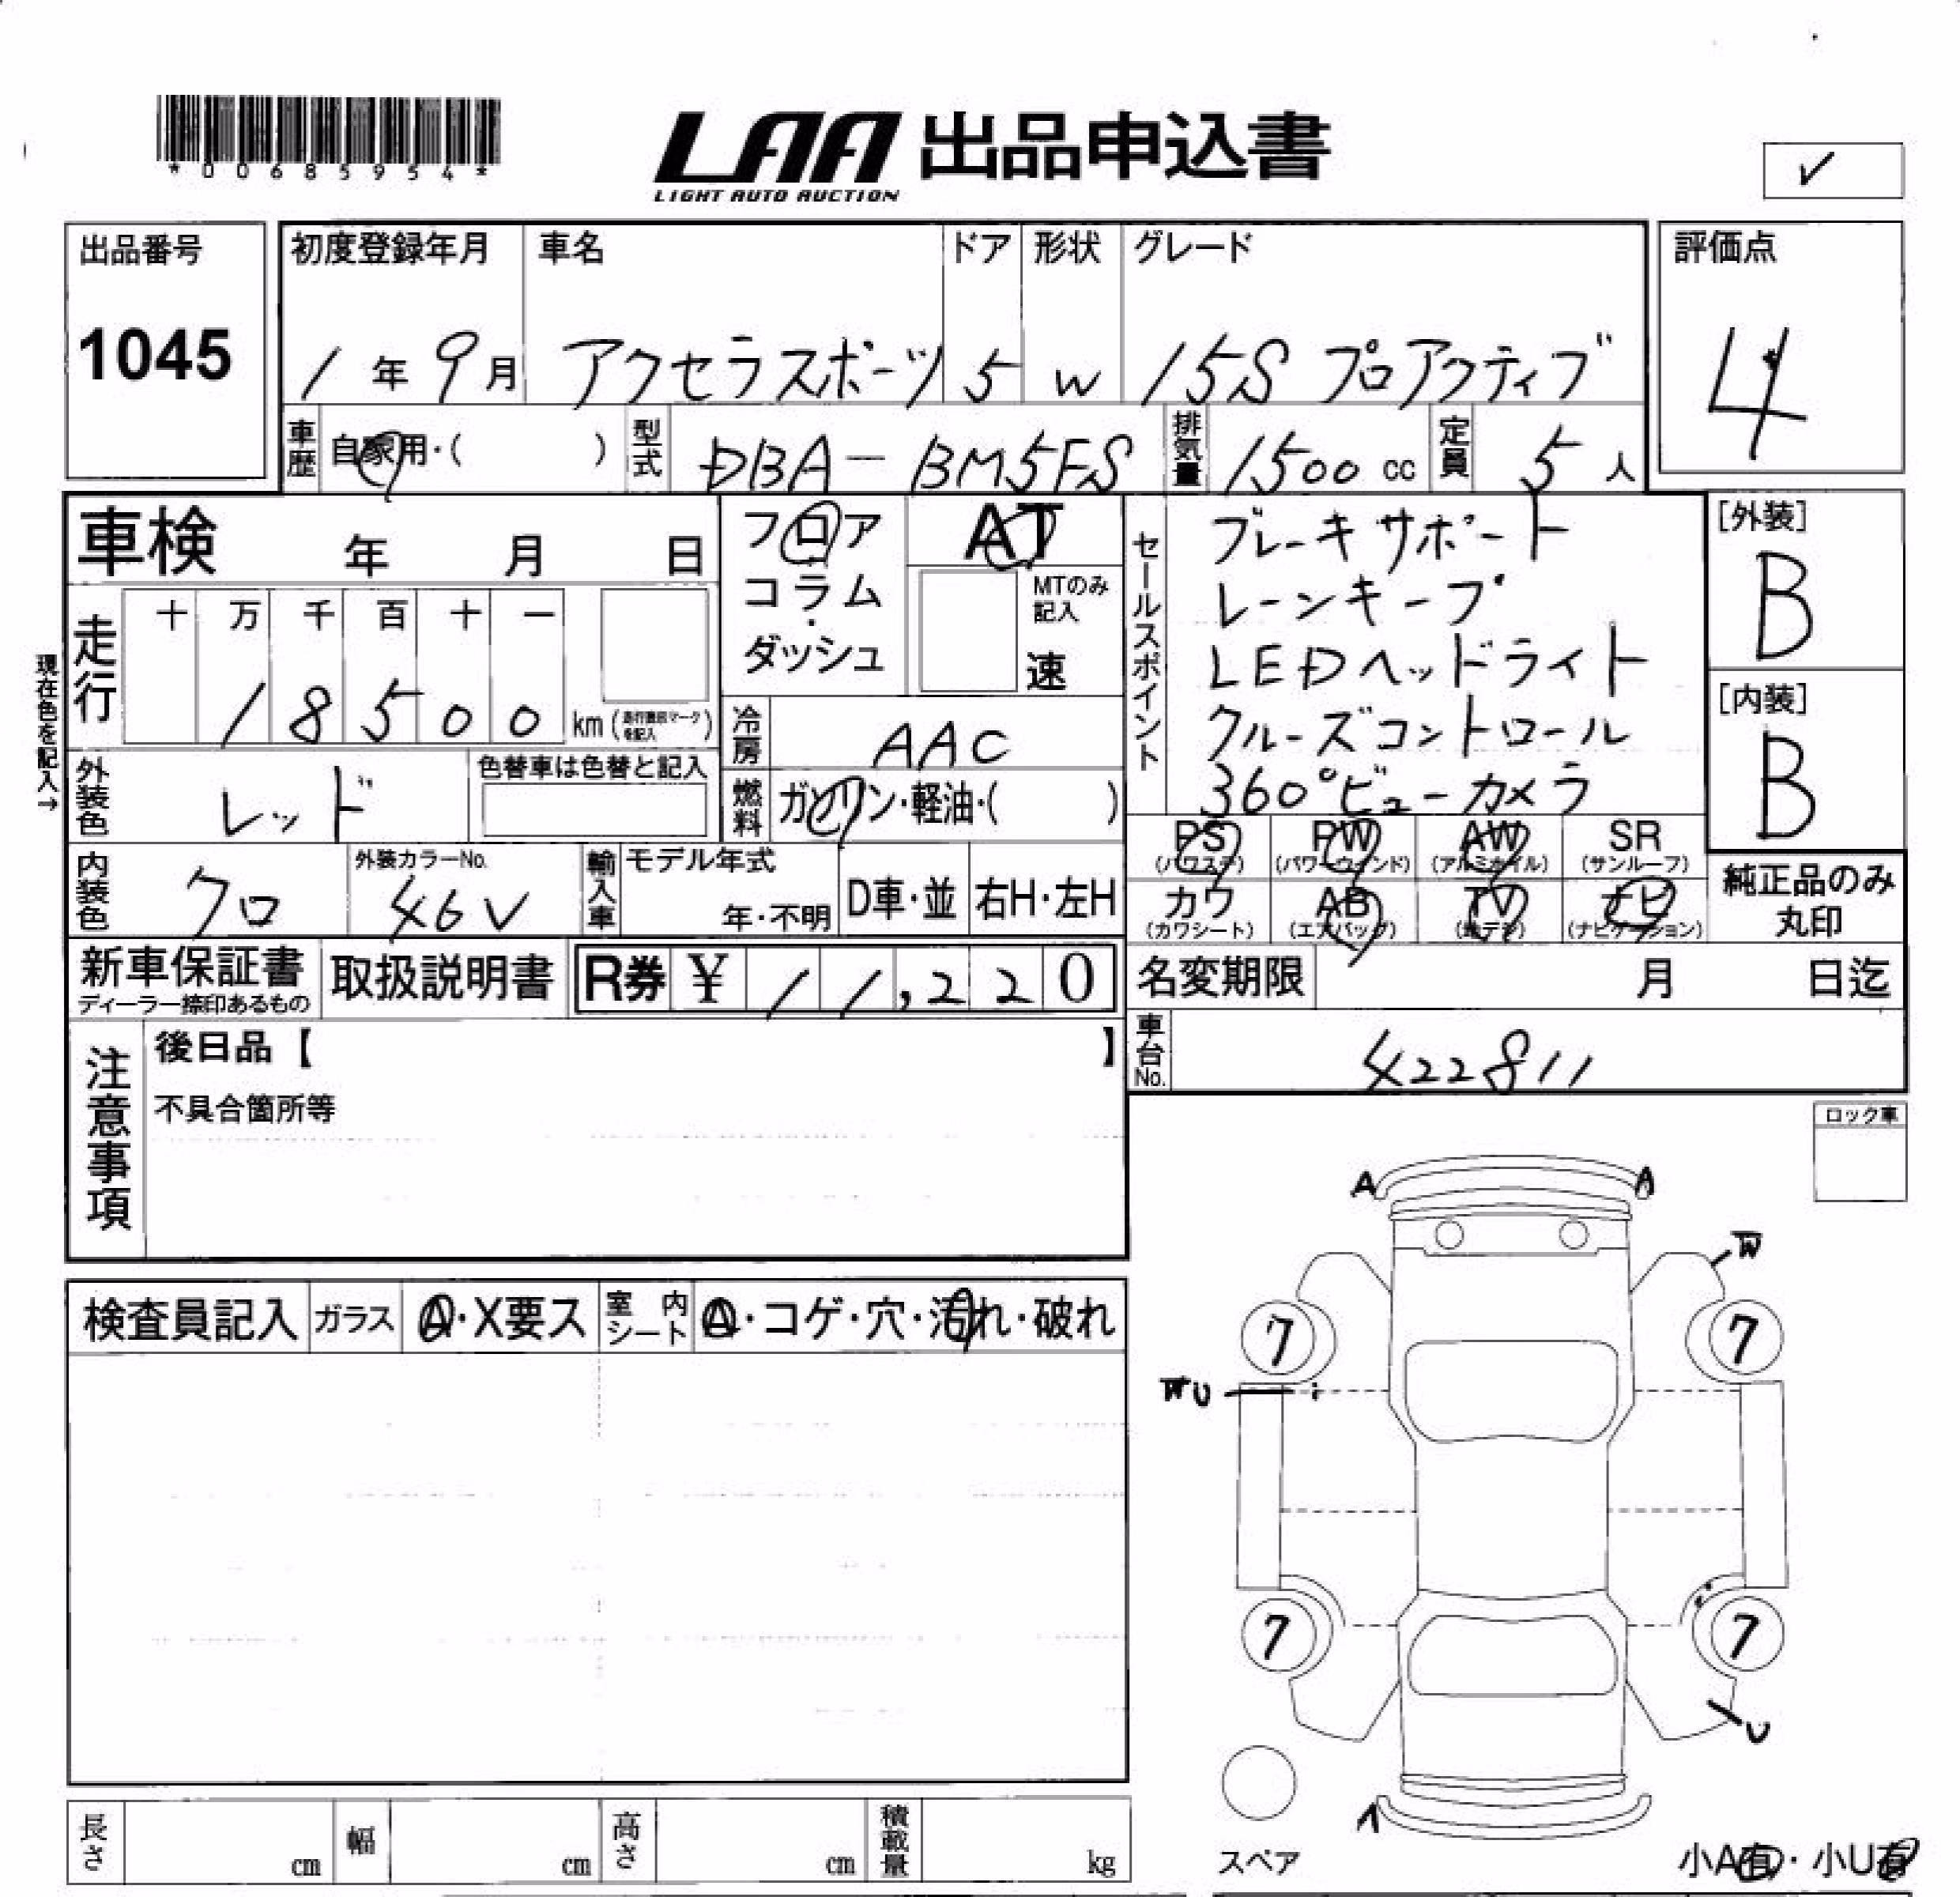 *00685954*
LAA 出品申込書
LIGHT AUTO AUCTION
✓
出品番号
1045
初度登録年月
1年9月
車名
アクセラスポーツ
ドア
5
形状
W
グレード
15S プロアクティブ
評価点
4
車歴
自家用・( )
型式
DBA-BM5FS
排気量
1500cc
定員
5人
車検 年 月 日
フロア
コラム・
ダッシュ
AT
MTのみ
記入
速
セールスポイント
ブレーキサポート
レーンキープ
LEDヘッドライト
クルーズコントロール
360°ビューカメラ
[外装]
B
[内装]
B
現在色を記入→
走行
十 万 千 百 十 一
18500
km(走行激戻マークを記入)
冷房
AAC
外装色
レッド
色替車は色替と記入
燃料
ガソリン・軽油・( )
PS
(パワステ)
PW
(パワーウィンド)
AW
(アルミホイル)
SR
(サンルーフ)
カワ
(カワシート)
AB
(エアバッグ)
TV
(地デジ)
ナビ
(ナビゲーション)
純正品のみ
丸印
内装色
クロ
外装カラーNo.
46V
輸入車
モデル年式
年・不明
D車・並
右H・左H
新車保証書
ディーラー捺印あるもの
取扱説明書
R券 ¥ 11,220
名変期限 月 日迄
車台No.
422811
注意事項
後日品【 】
不具合箇所等
ロック車
検査員記入
ガラス
A・X要ス
室内シート
A・コゲ・穴・汚れ・破れ
A
A
W
7
7
WU
7
7
U
A
スペア
小A有・小U有
長さ
cm
幅
cm
高さ
cm
積載量
kg